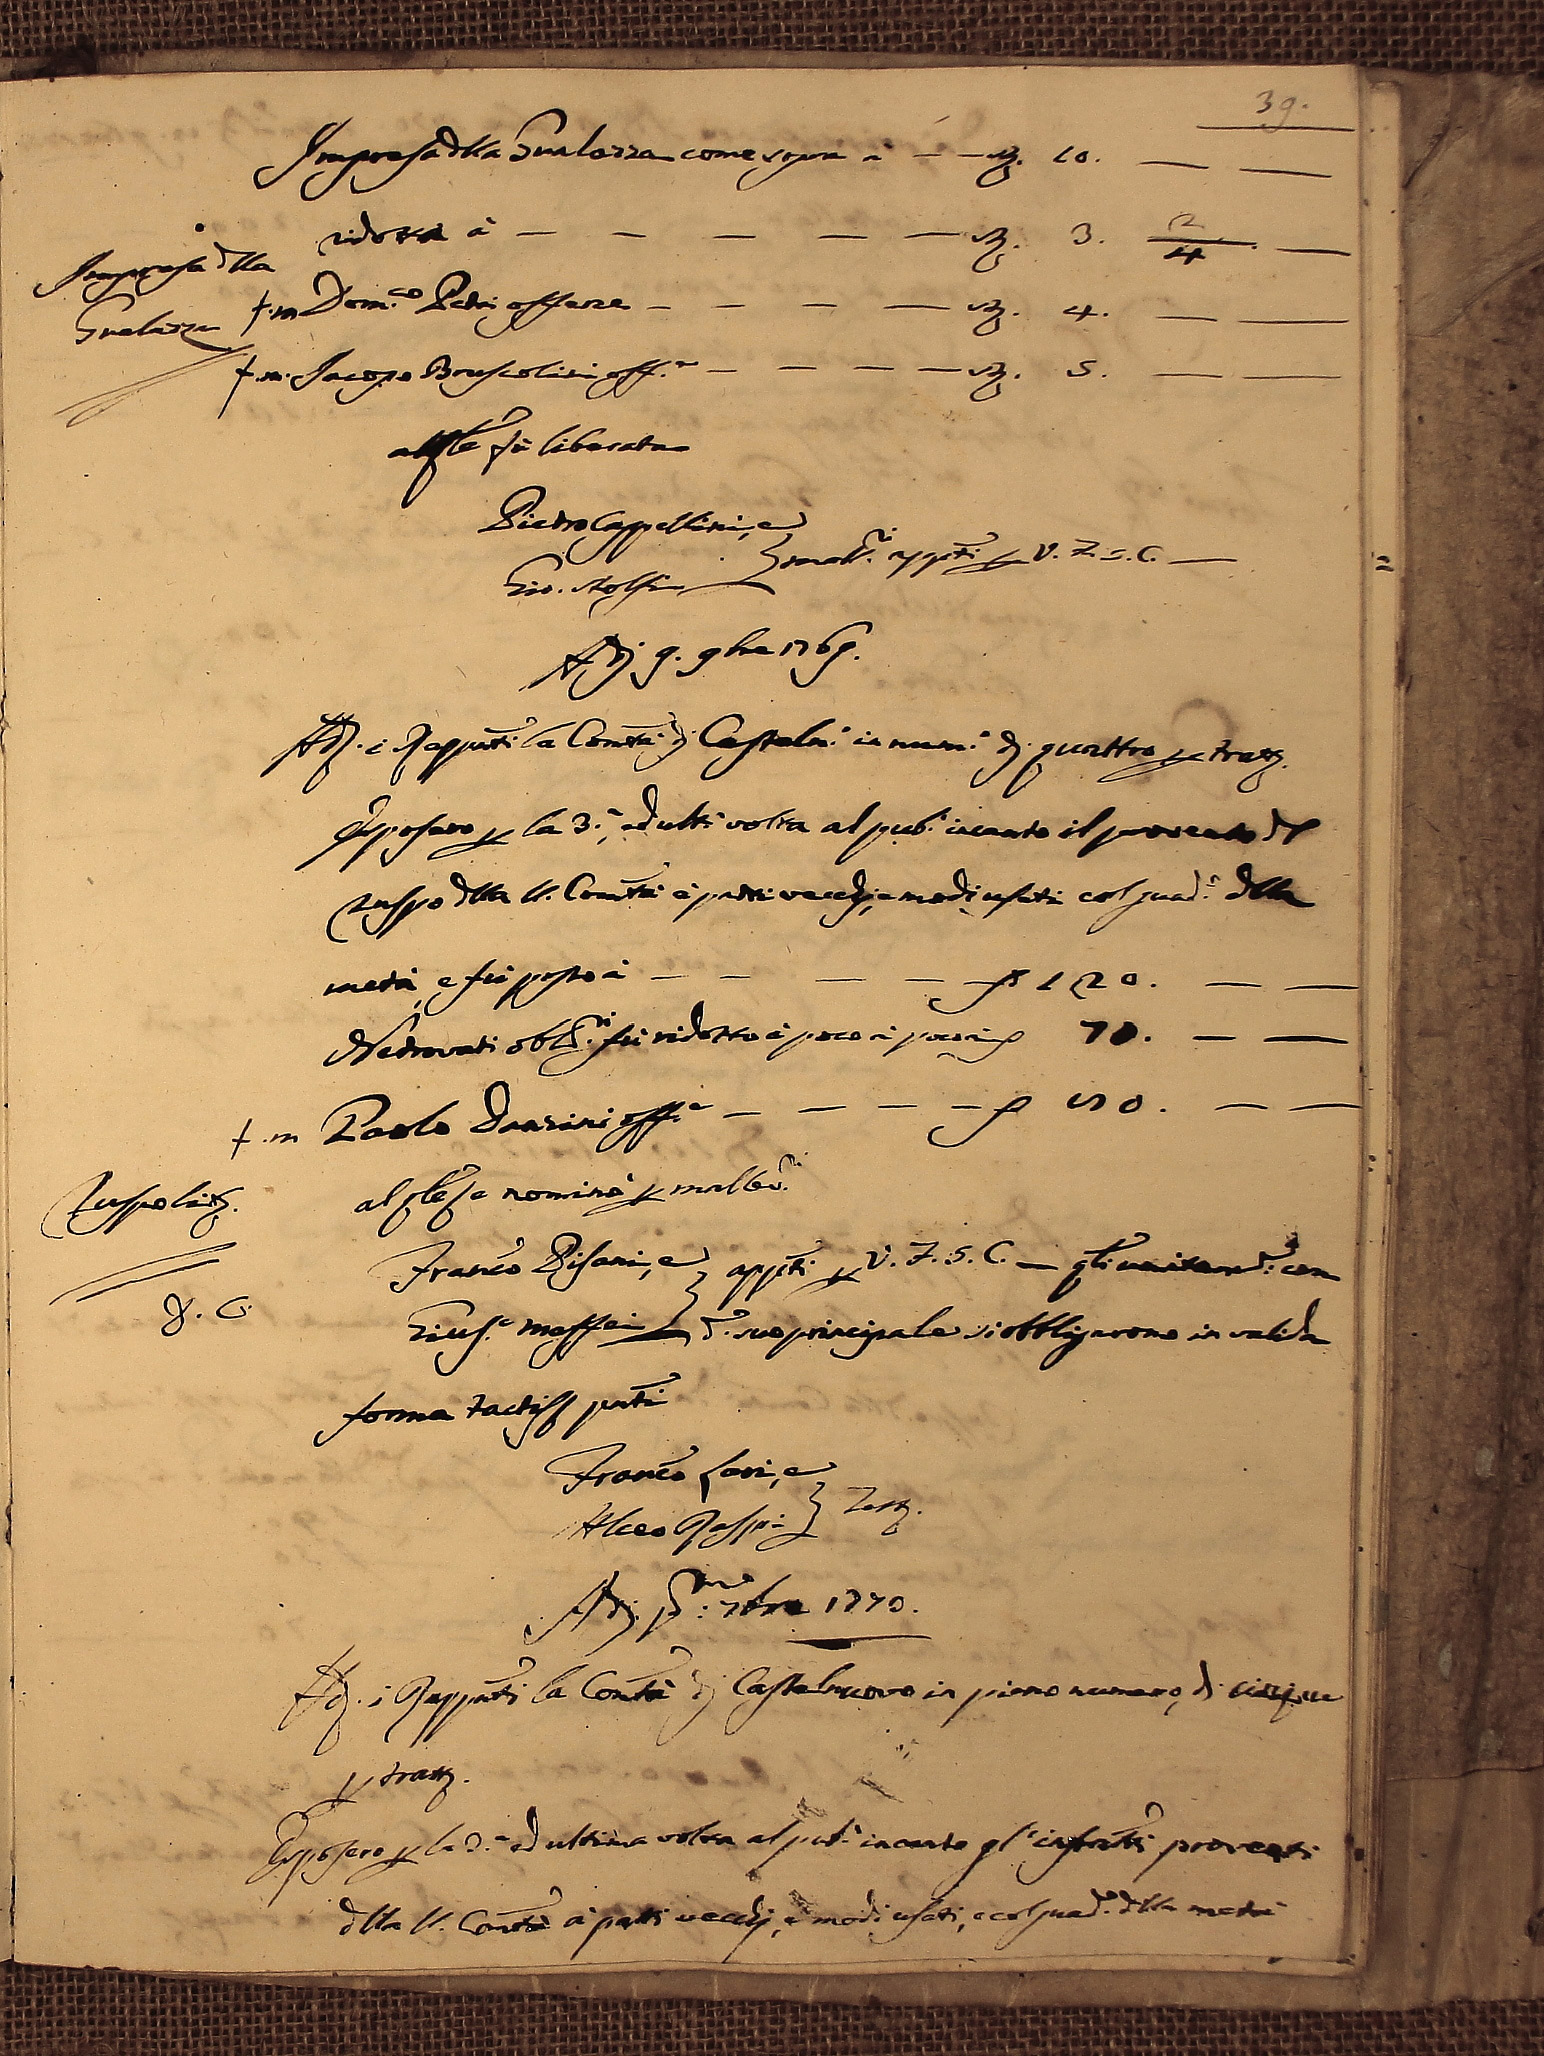 39.
Impresa dlla Gualazza come sopra a — — 10. — —
ridotta à — — — — — 3. 2/4. —
Impresa dlla
Gualazza
f.m Dom.co Pedri offerse — — — — 4. — —
f.m. Jacopo Bruscolini off.e — — — — 5. — —
al qle fù liberata
Pietro Cappellini, e
Gio. Stolfi
mall.ri appti per V. F. S. C. —
Adj 9. 9bre 1769.
Adj. i Rapputi la Comtà dj Casteln.o in num.o dj quattro per tratt.
Esposero per la 3.a, ed ulti volta al pub.o incanto il provento dl
ruspo dlla S. Comtà à patti vecchj, e modi usati col guad.o dlla
metà, e fù posto à — — — — 120. — —
Netrovati obl.ri fù ridotto à poco à poco à 70. — —
f.m Paolo Donzini off.e — — — — — —
al qle, e nominò per mallev.ri
Ruspolitj.
D. G.
Franco Pisani, e
Gius.e Maffei
appti per V. F. S. C. — qli con
d.o suo principale si obbligarono in valida
forma tactis puti
Franco Lori, e
Alceo Raspi
Testj.
Adj. pmo: 7bre 1770.
Adj. i Rapputi la Comtà dj Castelnuovo in pieno numero, dj cinque
per tratt.
Esposero per la 3.a ed ultima volta al pub.o incanto gl'infratti proventi
dlla S. Comtà à patti vecchj, e modi usati, e col guad.o dlla metà